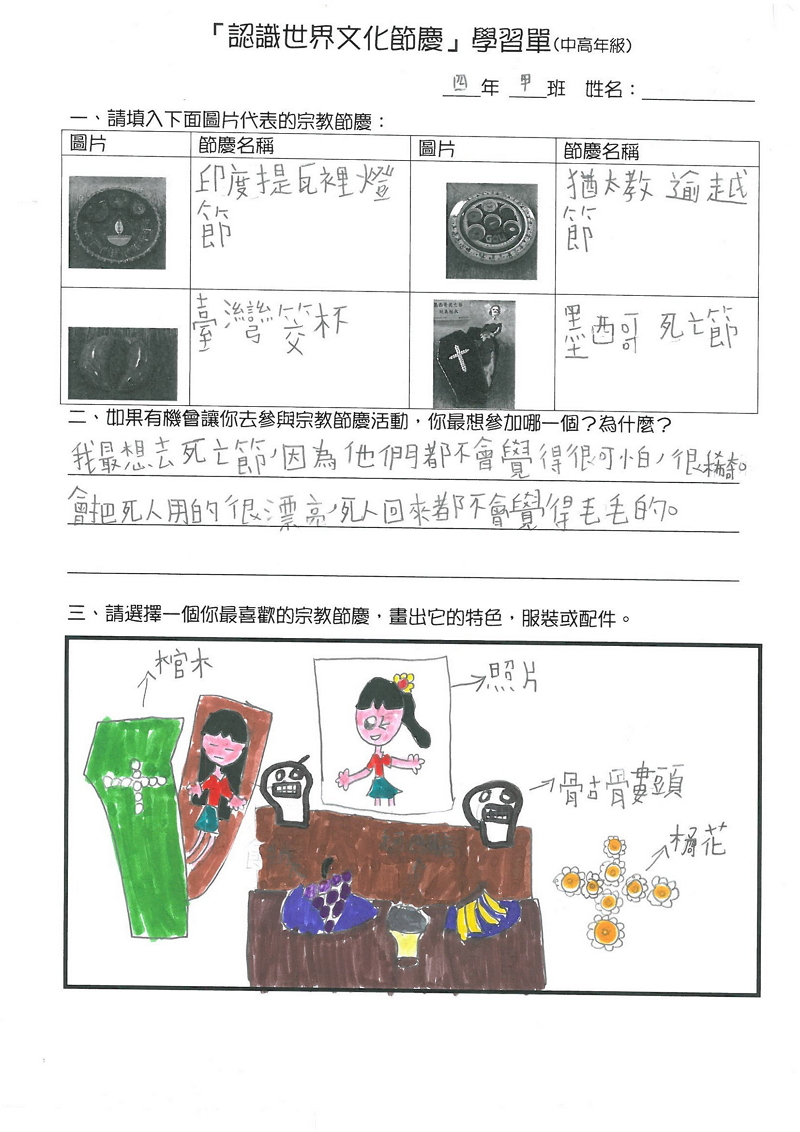 「認識世界文化節慶」學習單(中高年級)
四年 甲班 姓名：
一、請填入下面圖片代表的宗教節慶：
圖片 節慶名稱 圖片 節慶名稱
印度提瓦裡燈
節
猶太教 逾越
節
臺灣筊杯
墨西哥 死亡節
二、如果有機會讓你去參與宗教節慶活動，你最想參加哪一個？為什麼？
我最想去死亡節，因為他們都不會覺得很可怕，很稀奇。
會把死人用的很漂亮，死人回來都不會覺得毛毛的。
三、請選擇一個你最喜歡的宗教節慶，畫出它的特色，服裝或配件。
棺木
照片
骨古骨婁頭
橘花